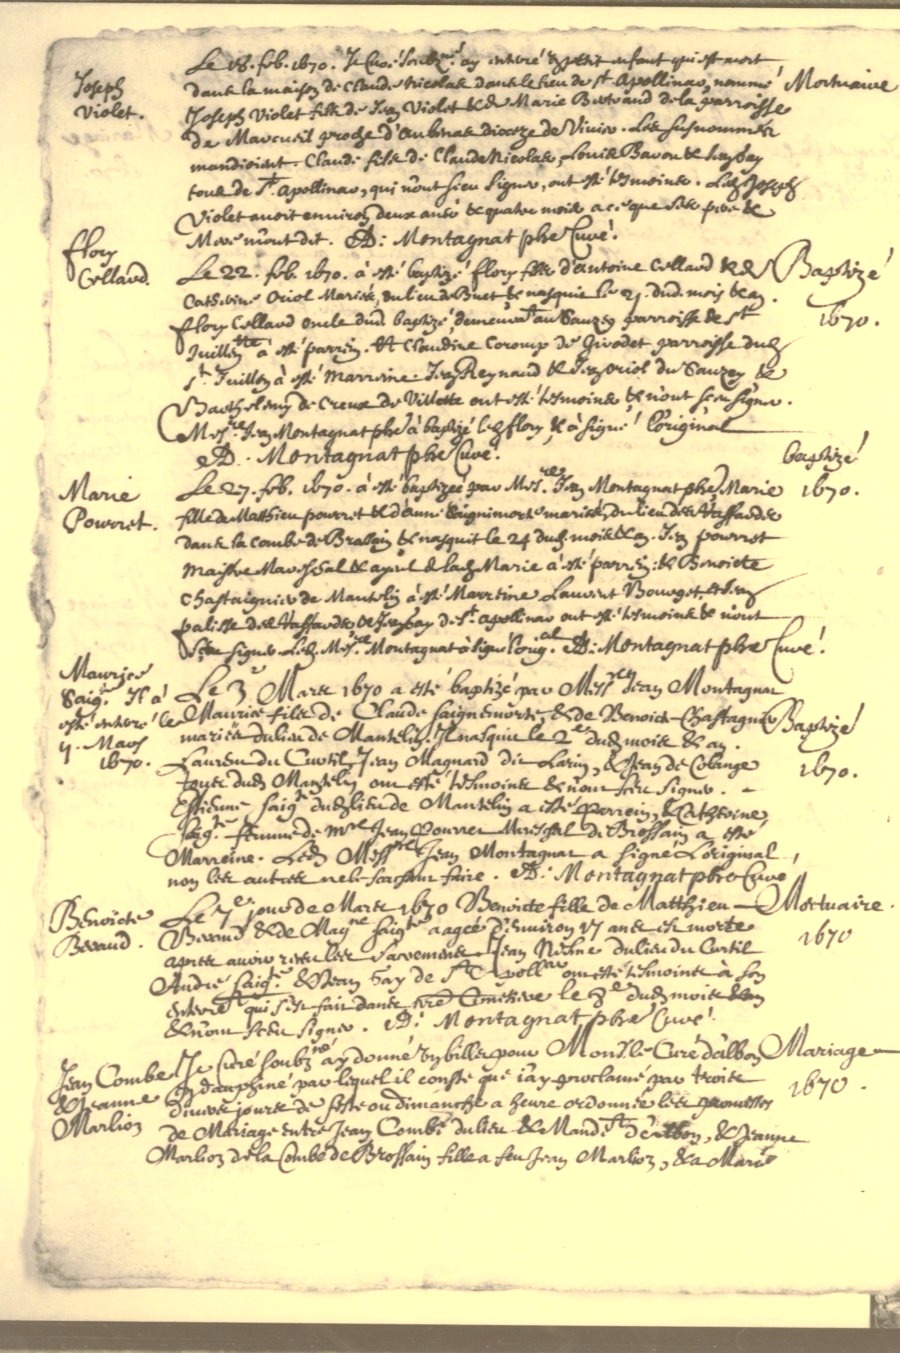 Joseph
Violet.
Le 18. feb. 1670. Je Curé soubz.né ay enterré petit enfant qui est mort
dans la maison de Claude Nicolas dans le lieu de St Apollinar, nommé
Mortuaire
Joseph Violet fils de Jean Violet & de Marie Bertrand de la parroisse
de Marcueil proche d'Aubenas dioceze de Vivier. Les susnommés
mandioient. Claude fils de Claude Nicolas, Louis & Jean
tous de St. Apollinar, qui n'ont sceu signer, ont esté tesmoins. Led Joseph
Violet avoit environ deux ans & quatre mois a ce que ses pere &
Mere m'ont dit. A: Montagnat pbre Curé.
flory
Collaud.
Le 22. feb. 1670. à esté baptizé flory fils d'antoine Collaud & de
Baptizé
1670.
Catherine Oriol Mariés, du lieu de & nasquit le 21. dud. mois & an.
flory Collaud oncle dud. baptizé demeurant au Sauzey parroisse de St
Juillen à esté parrin. Et Claudine Coromp de Givodet parroisse dud
St. Juillen à esté Marreine. Jean Reynaud & Jean Oriol du Sauzey &
Barthelemy de Creux de Villette ont esté tesmoins & n'ont sceu signer.
Mesre. Jean Montagnat pbre à baptizé led flory, & à signé l'original
A. Montagnat pbre Curé.
Marie
Pourret.
Le 27. feb. 1670. à esté baptizée par Mesre. Jean Montagnat pbre Marie
baptizé
1670.
fille de Matthieu pourret & d'anne Saignimorte mariés, du lieu des
dans la combe de & nasquit le 24 dud mois & an. Jean pourret
Maistre Mareschal & ayeul de lad Marie à esté parrin: & Benoicte
Chastaignier de Mantelin à esté Marreine Laurent Bourget, & Jean
palisse des & Jean de St. apollinar ont esté tesmoins & n'ont
sceu signer. Led. Mesre. Montagnat à signé l'orig.al A: Montagnat pbre Curé.
Maurice
Saig.te Il a
esté enterré le
4. Mars
1670.
Le 3e Mars 1670 a esté baptizé par Messre Jean Montagnat
Maurice fils de Claude Saignemorte, & de Benoicte Chastagnier
Baptizé
1670.
mariés du lieu de Mantelin. Il nasquit le 2e dud mois & an.
Laurens du Curtil, Jean Magnard dit Larin, & Jean de Colange
tous dud Mantelin ont esté tesmoins & n'ont sceu signer. -
Estienne Saig.te dud lieu de Mantelin a esté Perrein, & Catherine
Saig.te femme de mre Jean Pourret Mareschal de Brossain a esté
Marreine. Led Messre Jean Montagnat a signé L'original
non les autres ne le scachant faire. A: Montagnat pbre Curé
Benoicte
Beraud.
Le 7e jour de Mars 1670 Benoicte fille de Matthieu
Mortuaire.
1670
Beraud & de Mag.ne Saig.te aagée d'environ 17 ans est morte
apres avoir receu les Sacremens. Jean du lieu du Curtil
André Saig.te & Jean de St Apollinar ont esté tesmoins à son
enterrement qui s'est fait dans notre Cemetiere le 8e dud mois & an
& n'ont sceu signer. A: Montagnat pbre Curé.
Jean Combe
& Jeanne
Marlioz
Je Curé soubz.né ay donné un billet pour Monsr. le Curé d'albon
Mariage
1670.
en dauphiné par lequel il conste que i'ay proclamé par trois
divers jours de feste ou dimanche a heure ordonnée les promesses
de Mariage entre Jean Combe du lieu & Mandement d'albon, & Jeanne
Marlioz de la Combe de Brossain fille a feu Jean Marlioz, & a Marie